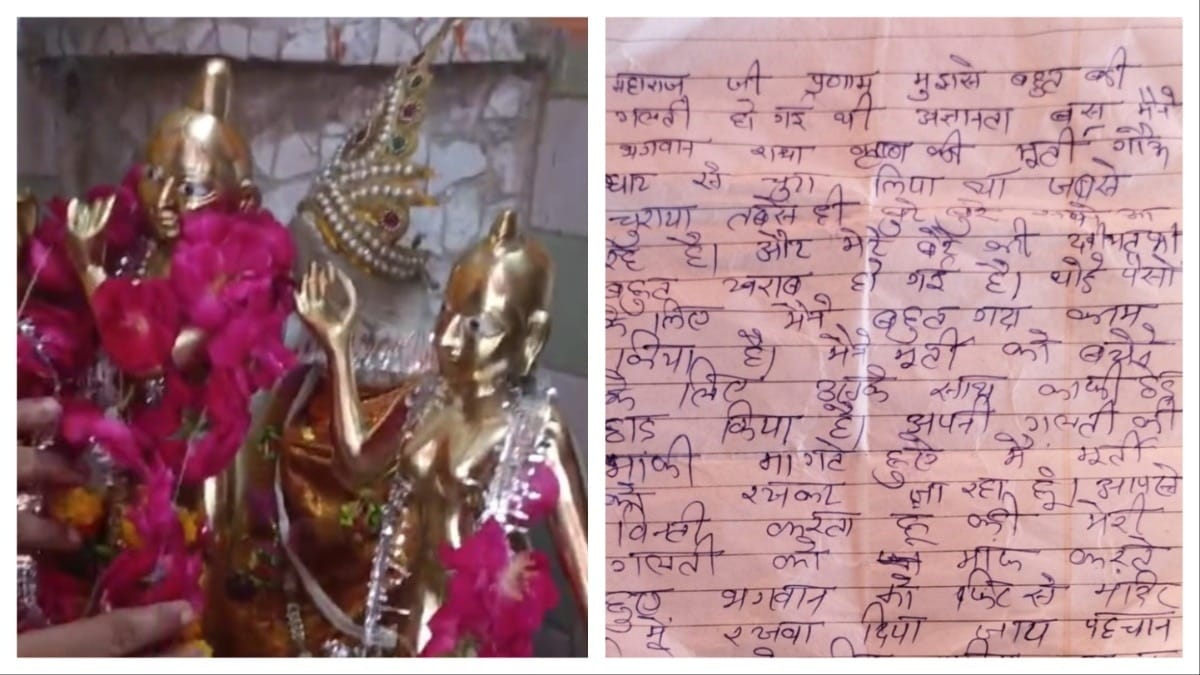 महाराज जी प्रणाम मुझसे बहुत बडी
गलती हो गई थी अज्ञानता बस मैने
भगवान राधा कृष्ण की मूर्ती गौऊ
घाट से चुरा लिया था जबसे
चुराया तबसे ही बुरे बुरे
रहे है। और मेरे बेटे की तबीयत भी
बहुत खराब हो गई है। थोडे पैसो
के लिए मैने बहुत गंदा काम
किया है। मैने मूर्ती को बेचने
के लिए उसके साथ काफी छेड़
छाड किया है। अपनी गलती की
माफी मागते हुऐ मै मूर्ती
को रखकर जा रहा हूं। आपसे
विन्ती करता हू की मेरी
गलती को माफ करते
हुए भगवान को फिर से मंदिर
में रखवा दिया जाय पहचान